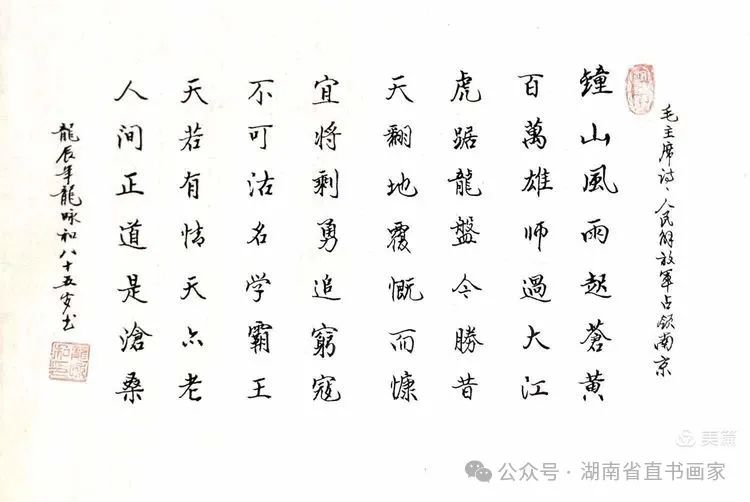 毛主席詩、人民解放军占领南京
鐘山風雨起蒼黄
百萬雄师過大江
虎踞龍盤今勝昔
天翻地覆慨而慷
宜将剩勇追窮寇
不可沽名学霸王
天若有情天亦老
人间正道是滄桑
龍辰年龍咏和八十五岁书
美篇
公众号·湖南省直书画家